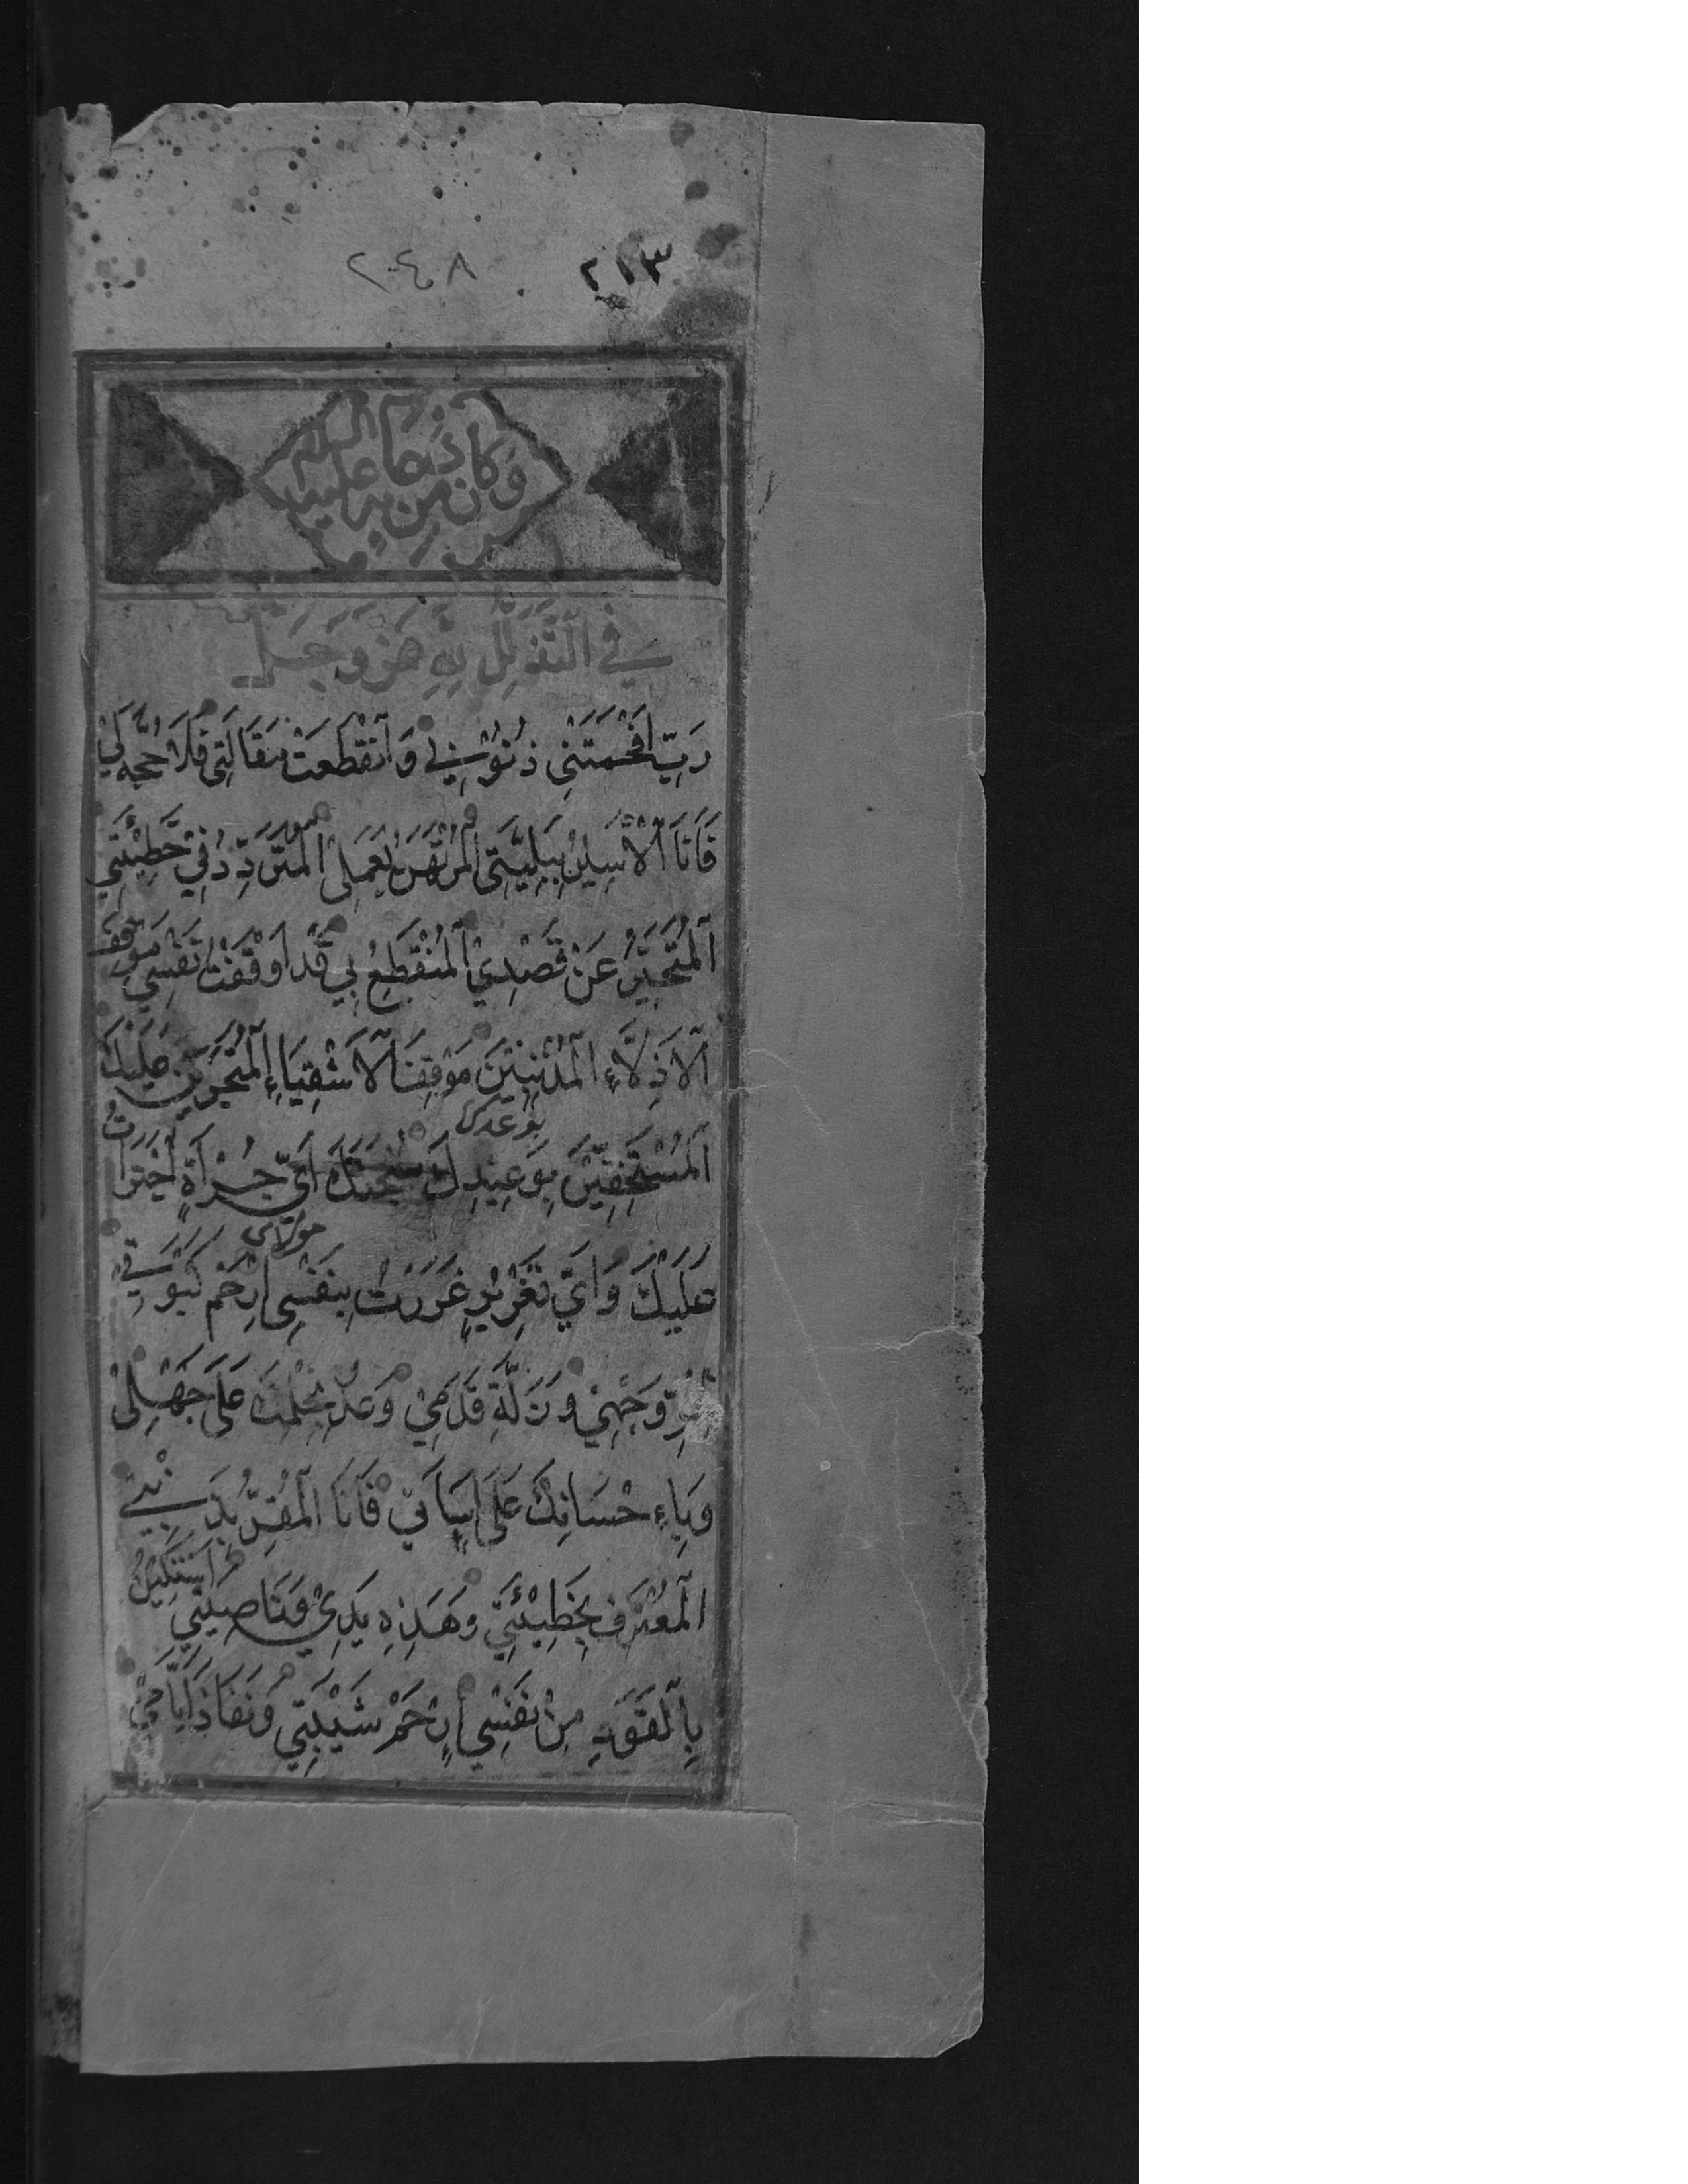 ٢١٣ ٢٤٨
وَكَانَ مِنْ دُعَائِهِ عَلَيْهِ السَّلَامُ
فِي التَّذَلُّلِ لِلَّهِ عَزَّ وَجَلَّ
رَبِّ اَفْحَمَتْنِي ذُنُوْبِيْ وَاَنْقَطَعَتْ مَقَالَتِي فَلَا حُجَّةَ لِيْ
فَاَنَا الْاَسِيْرُ بِبَلِيَّتِي الْمُرْتَهَنُ بِعَمَلِي الْمُتَرَدِّدُ فِيْ خَطِيْئَتِي
اَلْمُتَحَيِّرُ عَنْ قَصْدِيْ اَلْمُنْقَطِعُ بِيْ قَدْ اَوْقَفْتُ نَفْسِي مَوْقِفَ
اَلْاَذِلَّاءِ الْمُذْنِبِيْنَ مَوْقِفَ الْاَشْقِيَاءِ الْمُتَجَرِّيْنَ عَلَيْكَ
اَلْمُسْتَخِفِّيْنَ بِوَعِيْدِكَ بوعدك سُبْحَانَكَ اَيَّ جُرْأَةٍ اجْتَرَأْتُ
عَلَيْكَ وَاَيَّ تَغْرِيْرٍ غَرَرْتُ بِنَفْسِي مولاى ارْحَمْ كَبْوَتِيْ
لِحُرِّ وَجْهِيْ وَزَلَّةِ قَدَمِيْ وَعُدْ بِحِلْمِكَ عَلَى جَهْلِيْ
وَبِاِحْسَانِكَ عَلَى اِسَاءَتِي فَاَنَا الْمُقِرُّ بِذَنْبِيْ
الْمُعْتَرِفُ بِخَطِيْئَتِيْ وَهَذِهِ يَدِيْ وَنَاصِيَتِي اَسْتَكِيْنُ
بِالْقَوَدِ مِنْ نَفْسِي اِرْحَمْ شَيْبَتِيْ وَنَفَادَ اَيَّامِيْ